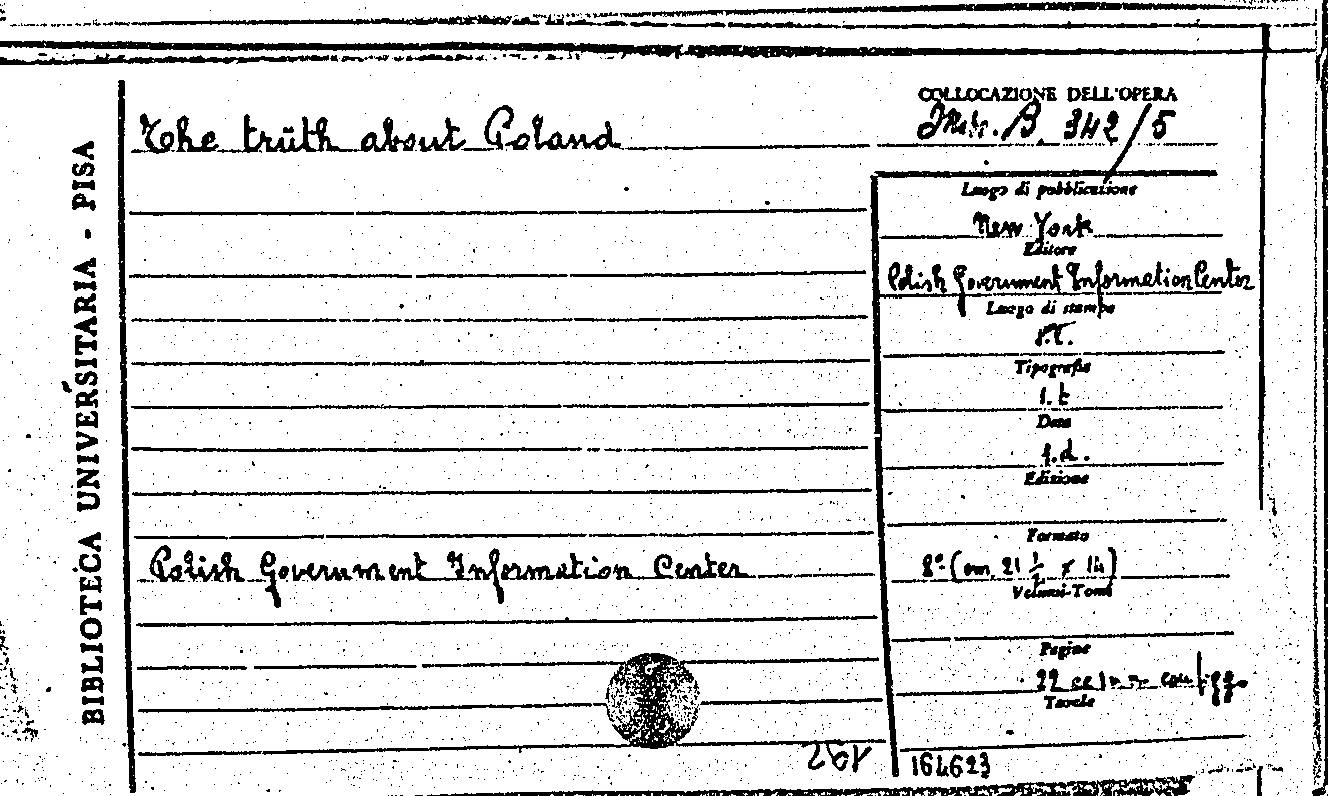 BIBLIOTECA UNIVERSITARIA - PISA
The truth about Poland
Polish Government Information Center
COLLOCAZIONE DELL'OPERA
B. 342/5
Luogo di pubblicazione
New York
Editore
Polish Government Information Center
Luogo di stampa
s.t.
Tipografia
s.t
Data
s.d.
Edizione
Formato
8° (cm. 21 ½ x 14)
Volumi-Tomi
Pagine
22 con figg.
Tavole
164623